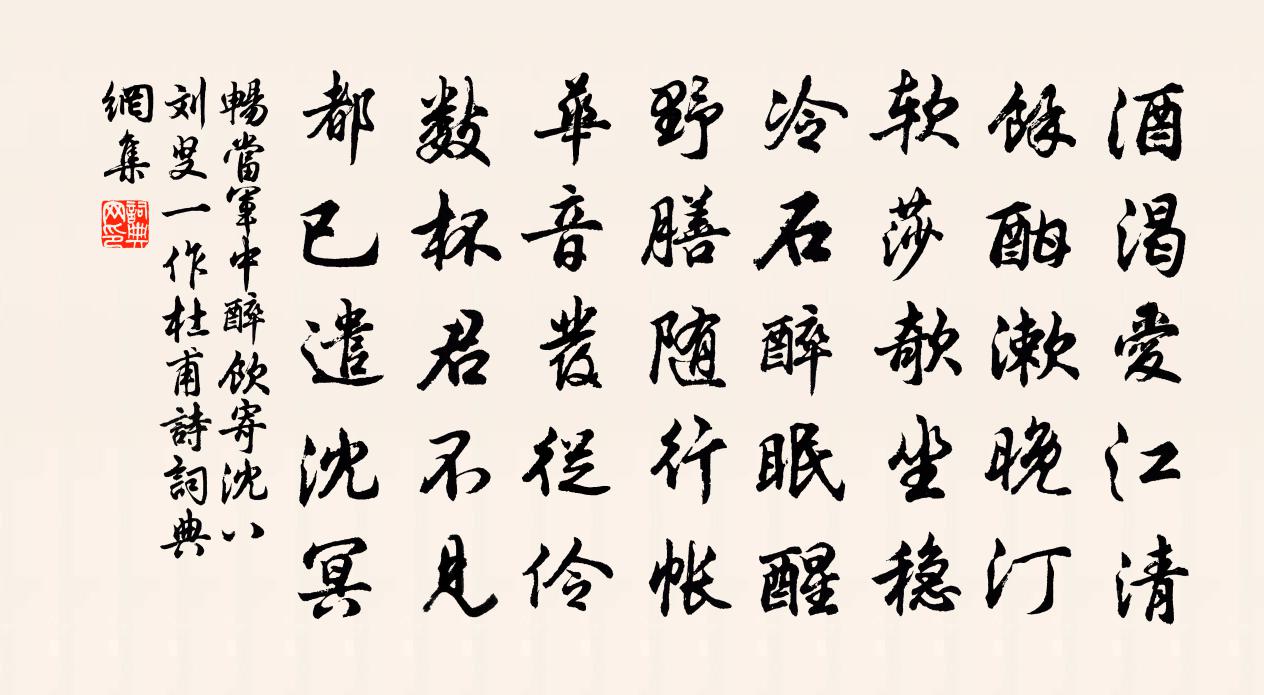 酒渴愛江清
餘酣漱晚汀
软莎欹坐穏
冷石醉眠醒
野膳随行帐
華音發從伶
数杯君不見
都已遣沈冥
暢當軍中醉飲寄沈八
刘叟一作杜甫詩詞典
網集
詞典